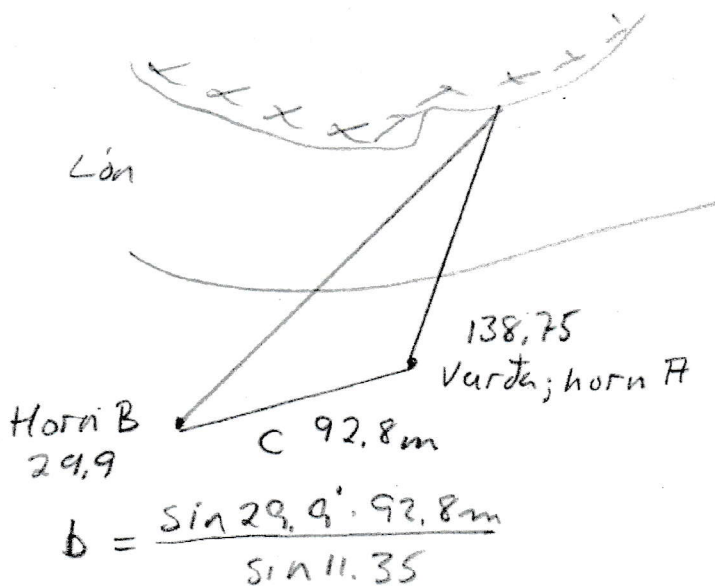 Lón
138,75
Varða; horn A
Horn B
29,9
C 92,8m
b = sin 29,9°. 92,8m
sin 11.35